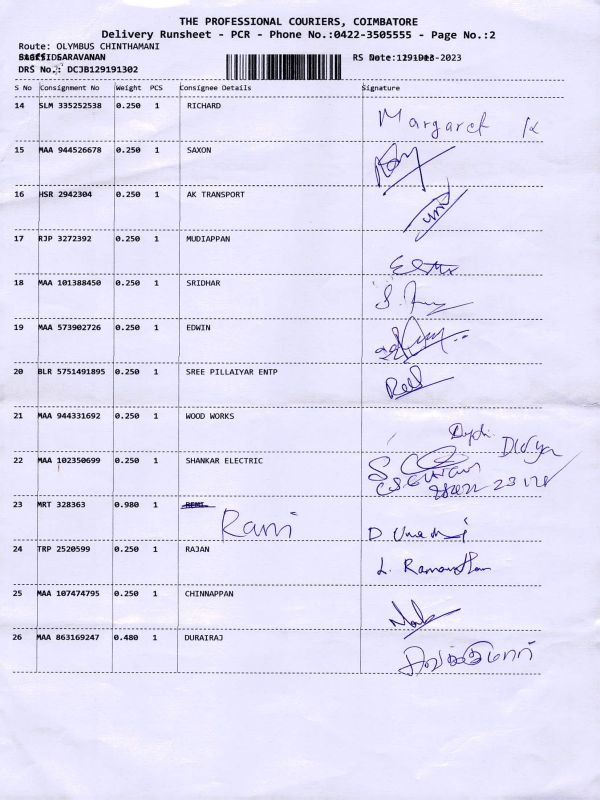 THE PROFESSIONAL COURIERS, COIMBATORE
Delivery Runsheet - PCR - Phone No.:0422-3505555 - Page No.:2
Route: OLYMBUS CHINTHAMANI
SARAVANAN RS Date: -2023
DRS No.: DCJB129191302
S No Consignment No Weight PCS Consignee Details Signature
14 SLM 335252538 0.250 1 RICHARD Margaret
15 MAA 944526678 0.250 1 SAXON
16 HSR 2942304 0.250 1 AK TRANSPORT
17 RJP 3272392 0.250 1 MUDIAPPAN
18 MAA 101388450 0.250 1 SRIDHAR
19 MAA 573902726 0.250 1 EDWIN
20 BLR 5751491895 0.250 1 SREE PILLAIYAR ENTP
21 MAA 944331692 0.250 1 WOOD WORKS
22 MAA 102350699 0.250 1 SHANKAR ELECTRIC
23 MRT 328363 0.980 1 Rani
24 TRP 2520599 0.250 1 RAJAN
25 MAA 107474795 0.250 1 CHINNAPPAN
26 MAA 863169247 0.480 1 DURAIRAJ